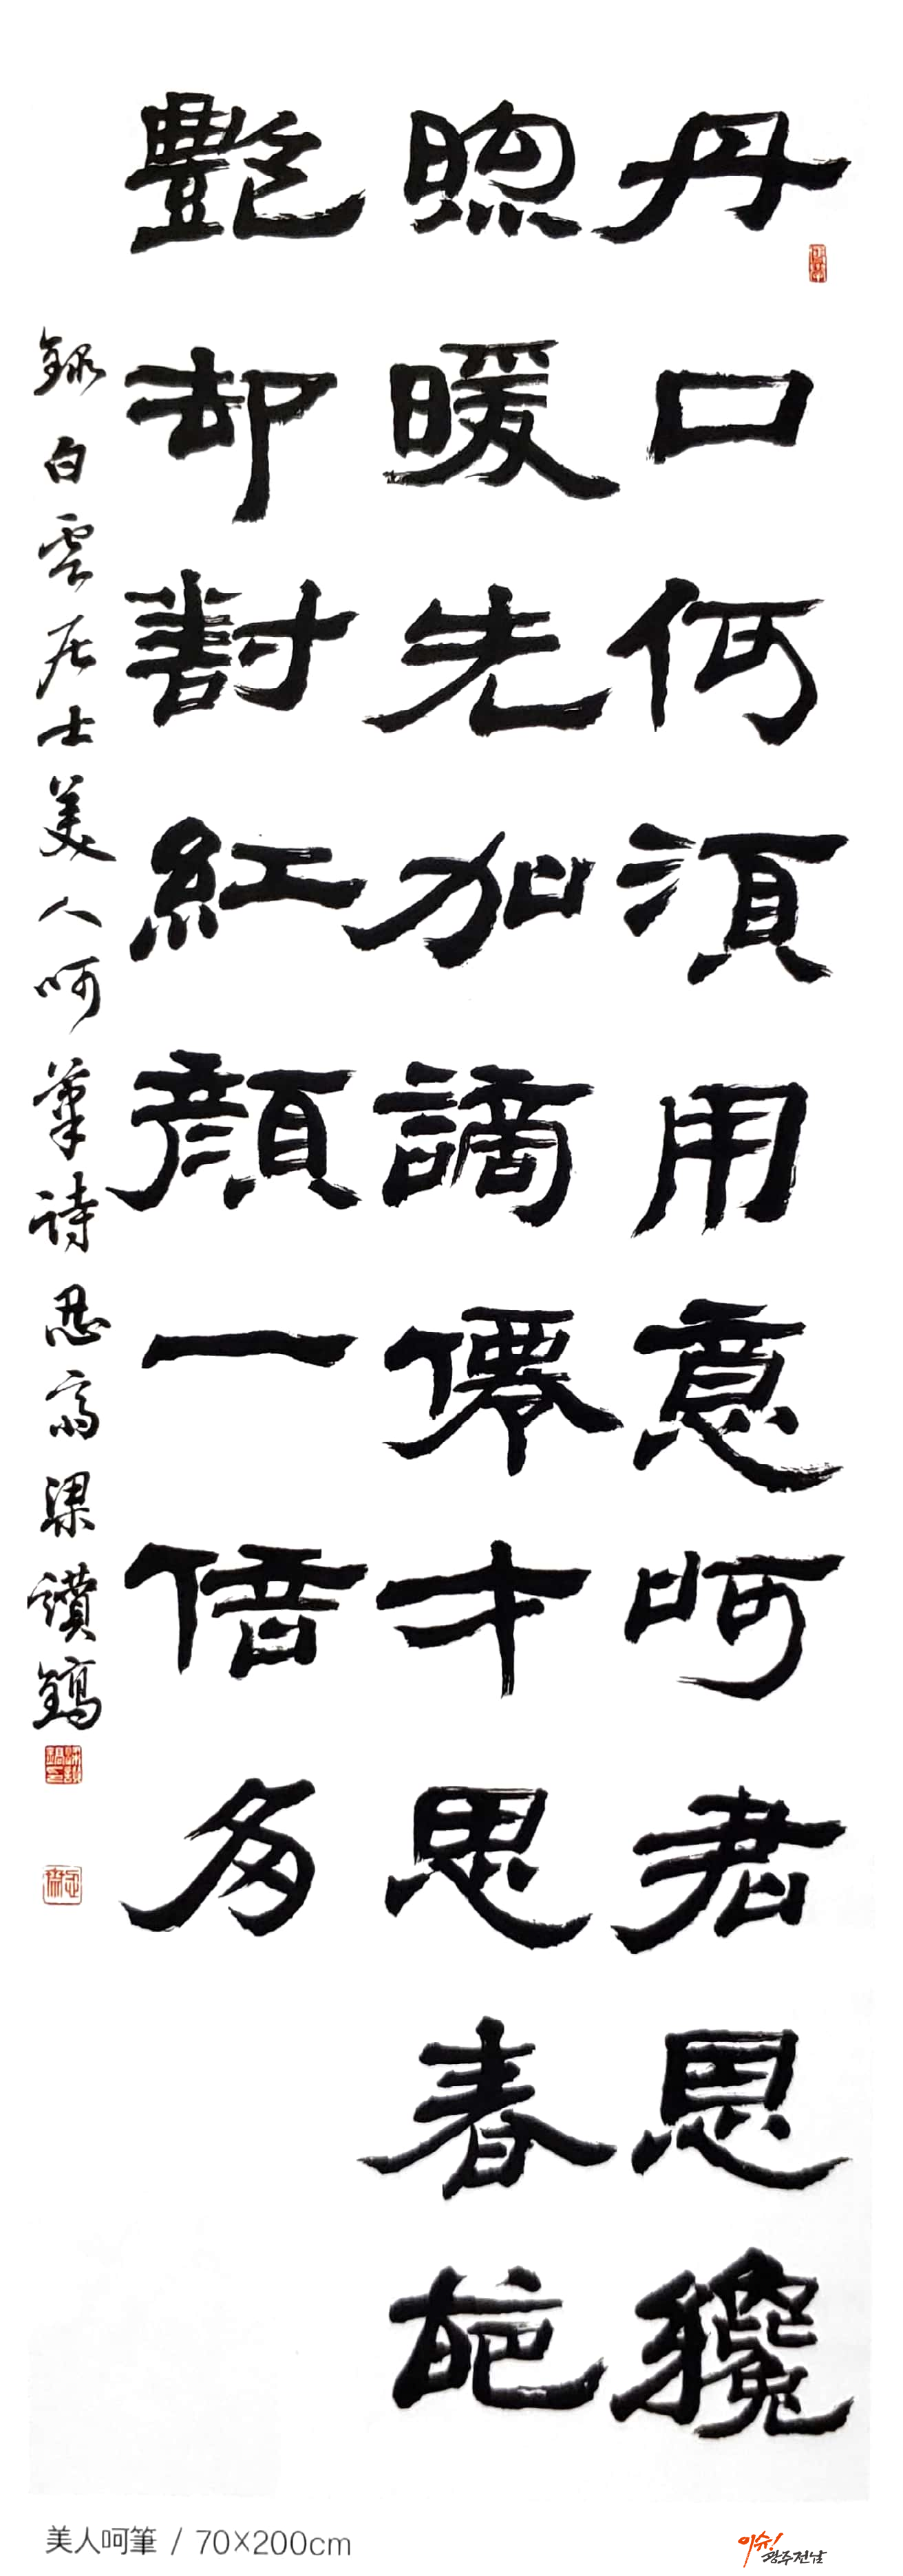 丹口何須用意呵君恩纔
煦暖先加謫僊才思春葩
艷却對紅顔一倍多
錄白雲居士美人呵筆詩忍齋梁讚鎬
美人呵筆 / 70×200cm
이슈!
광주전남